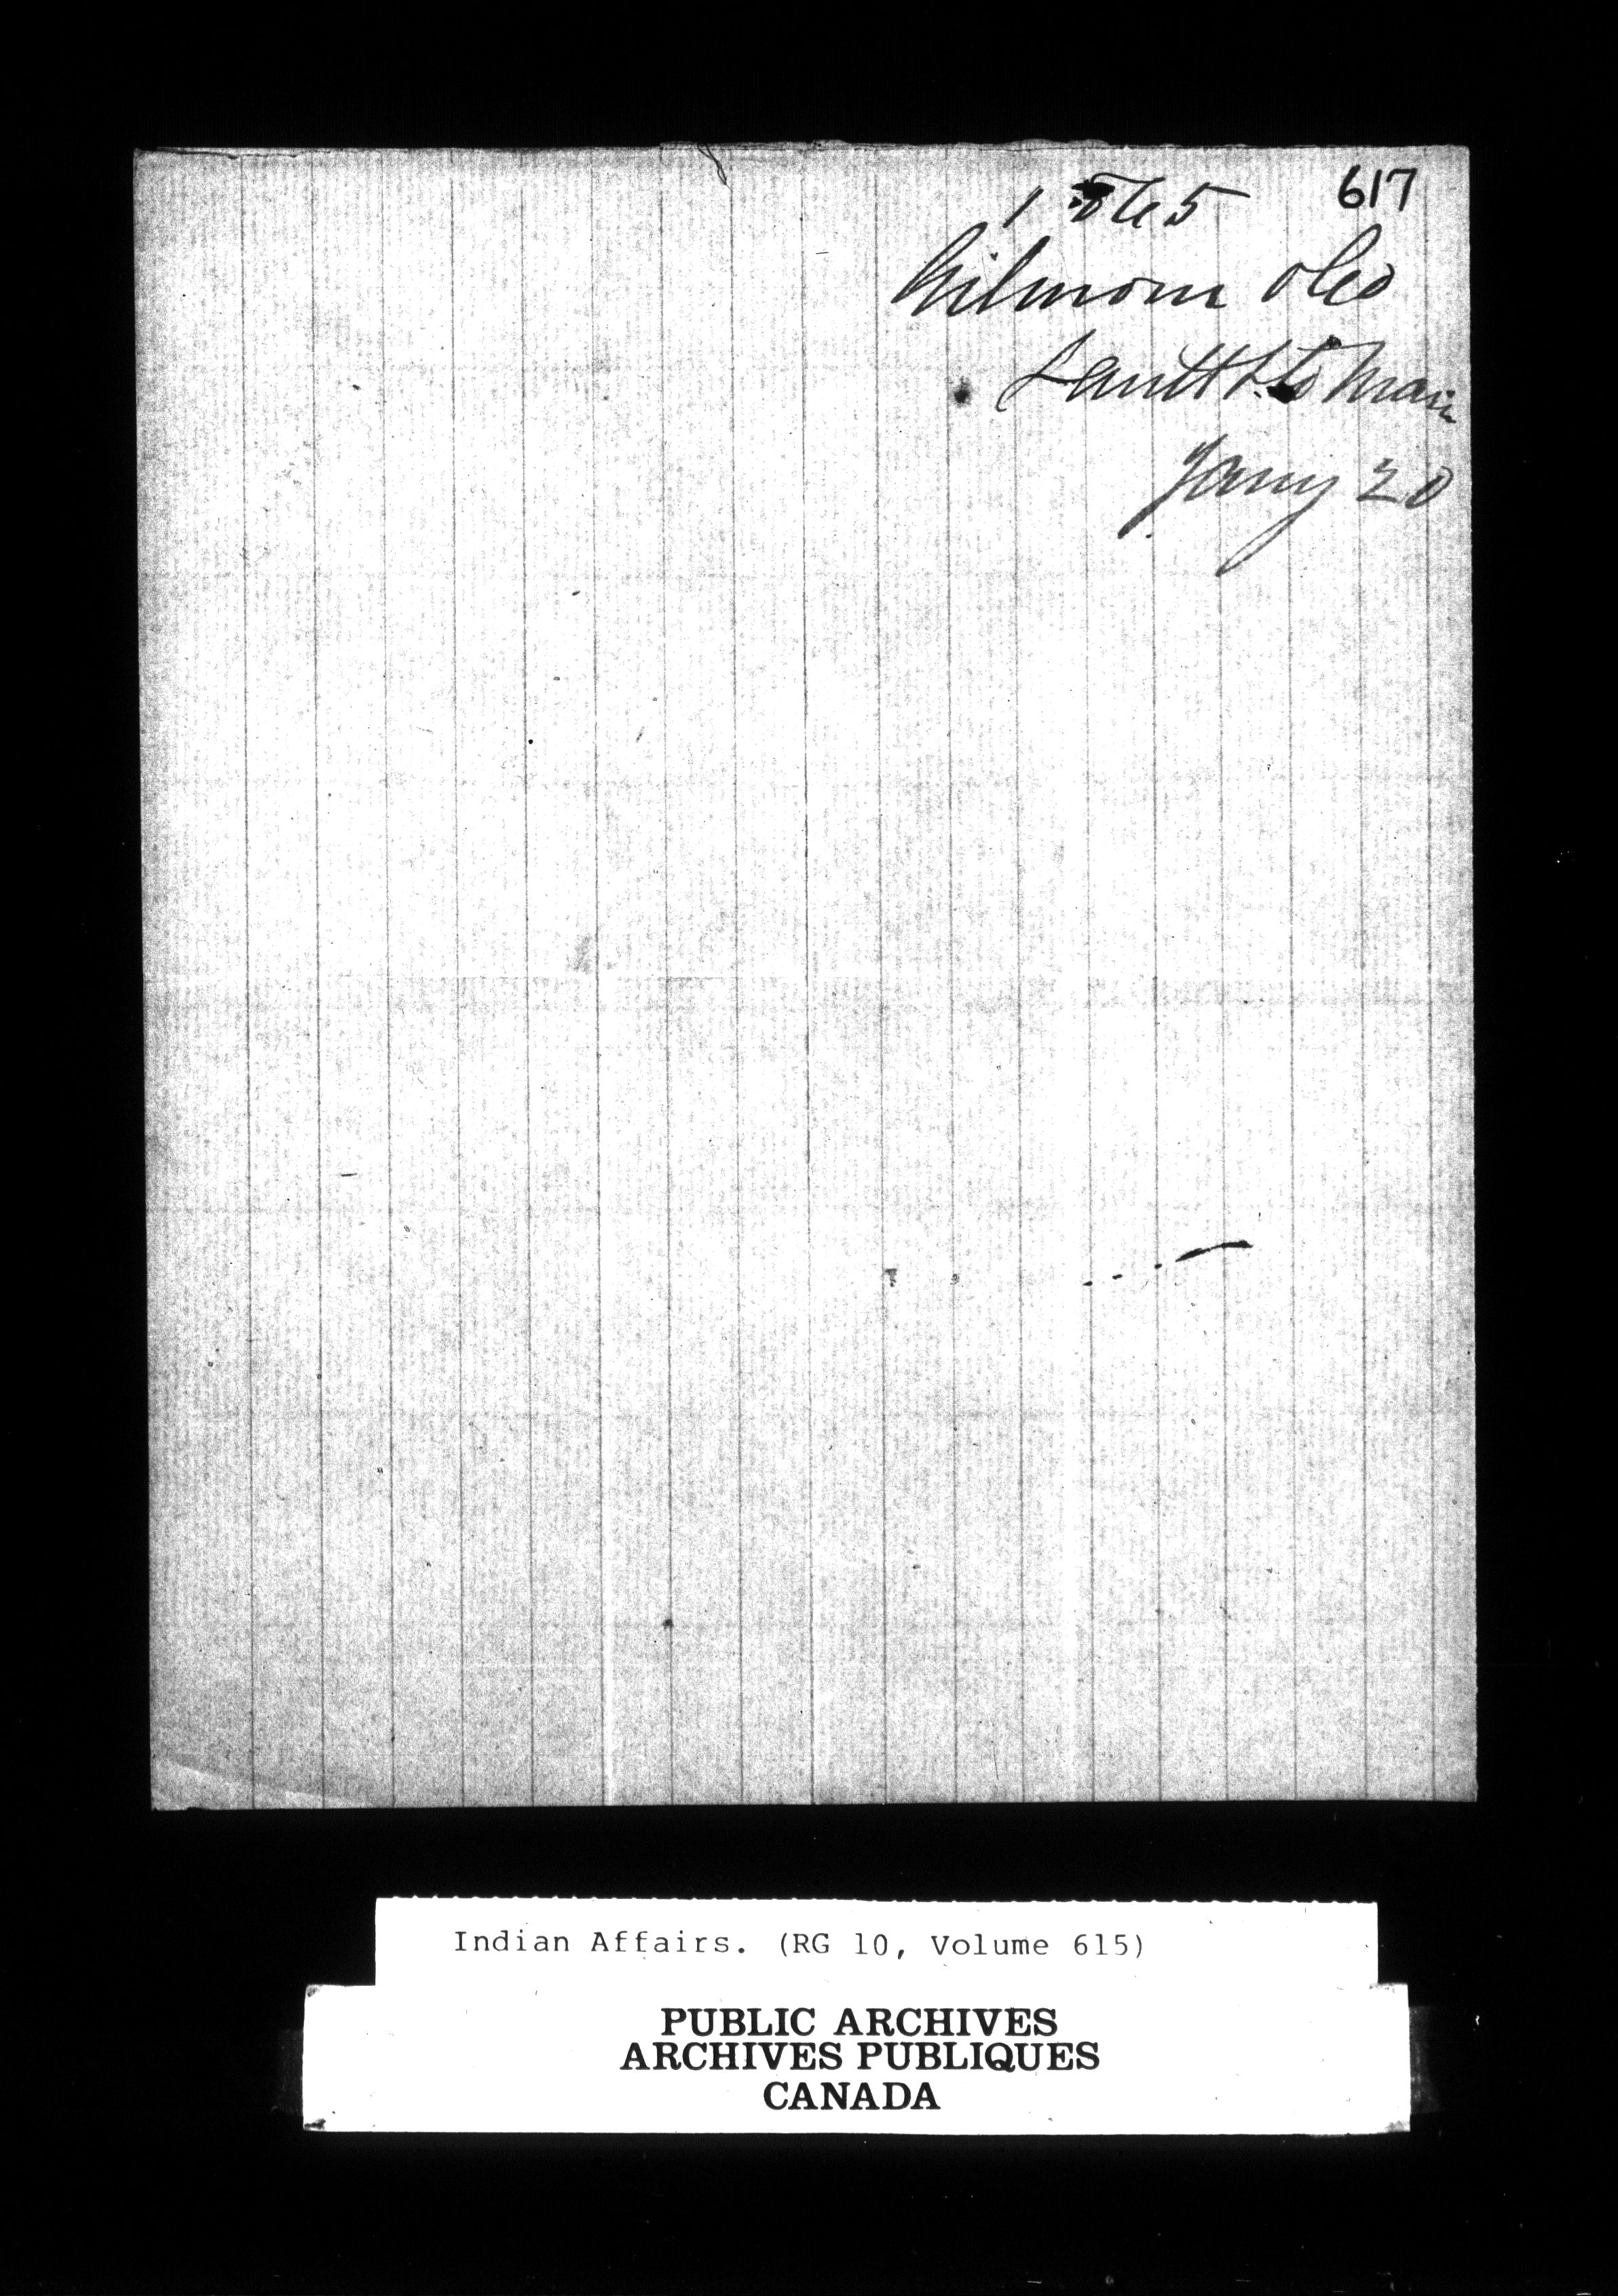 617
1865
Wilmom
Sault Ste Marie
Jany 20
Indian Affairs. (RG 10, Volume 615)
PUBLIC ARCHIVES
ARCHIVES PUBLIQUES
CANADA